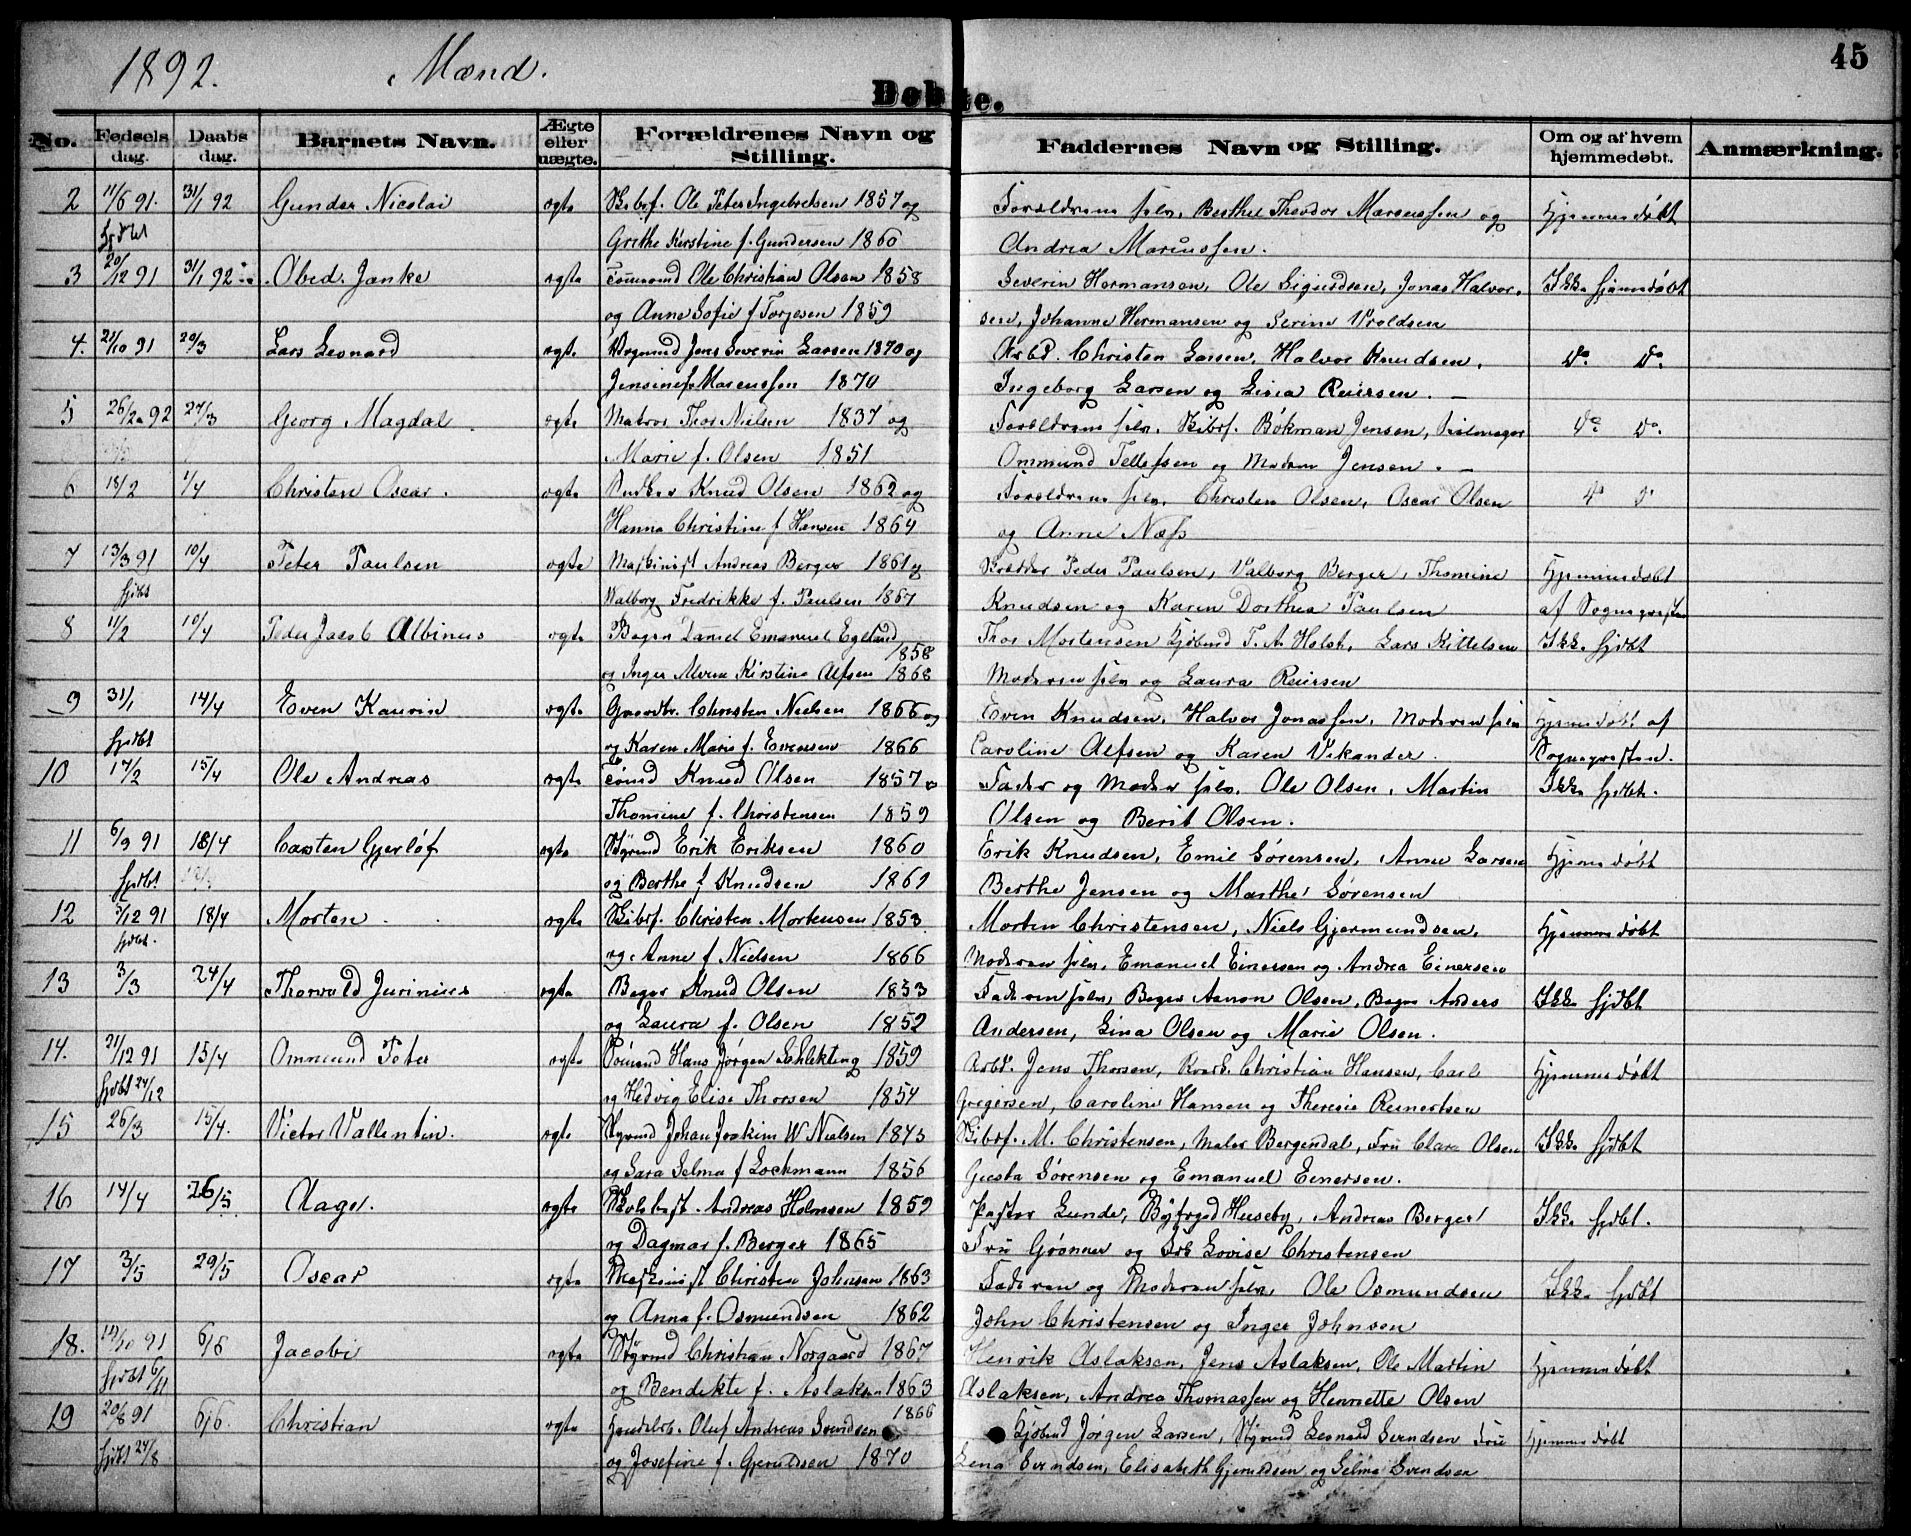 1892. Mænd.
45
Døbte.
No. Fødsels dag. Daabs dag. Barnets Navn. Ægte eller uægte. Forældrenes Navn og Stilling. Faddernes Navn og Stilling. Om og af hvem hjemmedøbt. Anmærkning.
2 11/6 91. 31/1 92 Gunder Nicolai ægte Skibsf. Ole Peter Ingebretsen 1857 og Forældrene selv, Berthe Theodor Mareussen og Hjemmedøbt
hjdbt Grethe Kerstine f. Gundersen 1860 Andrea Mareussen.
3 20/12 91 31/1 92 Obed. Janke ægte Tømmermd Ole Christian Olsen 1858 Severin Hermansen, Ole Sigurdsen, Jonas Halvor- Ikke hjemmedøbt
og Anne Sofie f Torjesen 1859 sen, Johanne Hermansen og Serine Vroldsen
4. 21/10 91 20/3 Lars Leonard ægte Styrmd Jens Severin Larsen 1870 og Arbd. Christen Larsen, Halvor Knudsen, do do.
Jensine f. Mareussen 1870 Ingeborg Larsen og Lina Reiersen. –
5 26/2 92 27/3 Georg Magdal ægte Matros Thor Nielsen 1837 og Forældrene selv, Skibsf. Bøkman Jensen, Seilmager do do.
Marie f. Olsen 1851 Ommund Tellefsen og Madam Jensen. –
6 18/2 1/4 Christen Oscar. ægte Knud Olsen 1862 og Forældrene selv, Christen Olsen, Oscar Olsen do do
Hanna Christine f Hansen 1864 og Anne Næss
7 13/3 91 10/4 Peter Paulsen ægte Maskinist Andreas Berger 1861 og Peder Paulsen, Valborg Berger, Thomine Hjemmedøbt
hjdbt Valborg Fredrikke f. Paulsen 1867 Knudsen og Karen Dorthea Paulsen af Sognepresten
8 11/2 10/4 Peder Jacob Albinus ægte Bager Daniel Emanuel Egeland Thor Mortensen Kjøbmd T. A. Holst, Lars Kittelsen Ikke hjdbt
1858
og Inger Alvine Kirstine Alfsen 1868 Moderen selv og Laura Reiersen
9 31/1 14/4 Even Kaurin ægte Gaardbr. Christen Nielsen 1866 og Even Knudsen, Halvor Jonassen, Moderen selv Hjemmedøbt af
hjdbt og Karen Marie f. Evensen 1866 Caroline Alfsen og Karen Vikander. Sognepresten.
10 17/2 15/4 Ole Andreas ægte Tømmd Knud Olsen 1857 og Fader og Moder selv, Ole Olsen, Martin Ikke hjdbt.
Thomine f. Christensen 1859 Olsen og Berit Olsen.
11 6/9 91 18/4 Carsten Gjerløf ægte Styrmd Erik Eriksen 1860 Erik Knudsen, Emil Sørensen, Anne Larsen Hjemmedøbt
hjdbt og Berthe f Knudsen 1861 Berthe Jensen og Marthe Sørensen
12 5/12 91 18/4 Morten ægte Skibsf. Christen Mortensen 1853 Morten Christensen, Niels Gjermundsen, Hjemmedøbt
hjdbt. og Anne f Nielsen 1866 Moderen selv, Emanuel Einersen og Andrea Einersen
13 3/3 24/4 Thorvald Jurinius ægte Bager Knud Olsen 1853 Faderen selv, Bager Aanon Olsen, Bager Anders Ikke hjdbt
og Laura f. Olsen 1852 Andersen, Lina Olsen og Marie Olsen.
14. 21/12 91 15/4 Ommund Peter ægte Tømmd Hans Jørgen Schlekting 1859 Arbd. Jens Thorsen, Christian Hansen, Carl Hjemmedøbt
hjdbt 24/12 og Hedvig Elise Thorsen 1854 Gregersen, Caroline Hansen og Theresie Reinertsen
15 26/3 15/4. Victor Vallentin. ægte Styrmd Johan Joakim W Nielsen 1845 Skibsf. M. Christensen, Maler Bergendal, Fru Clara Olsen Ikke hjdbt
og Sara Selma f Lockmann 1856 Giesta Sørensen og Emanuel Einersen.
16 14/4 26/5 Aage. ægte Andreas Holmsen 1859 Pastor Lunde, Byfogd Huseby, Andreas Berger Ikke hjdbt.
og Dagmar f. Berger 1865 Fru Grønner og Frk Lovise Christensen
17 3/5 29/5 Oscar ægte Maskinist Christen Johnsen 1863 Faderen og Moderen selv, Ole Osmundsen Ikke hjdbt
og Anna f. Osmundsen 1862 John Christensen og Inger Johnsen
18. 14/10 91 6/6 Jacobi ægte Styrmd Christian Norgaard 1867 Henrik Aslaksen, Jens Aslaksen, Ole Martin Hjemmedøbt
hjdbt 6/11 og Bendikte f. Aslaksen 1863 Aslaksen, Andrea Thomassen og Henriette Olsen
19 20/8 91 6/6. Christian ægte Handelsb. Oluf Andreas Svendsen 1866 Kjøbmd Jørgen Larsen, Styrmd Leonard Svendsen Fru Hjemmedøbt
hjdbt 24/8 og Josefine f. Gjeruldsen 1870 Lena Svendsen, Elisabeth Gjeruldsen og Selma Svendsen